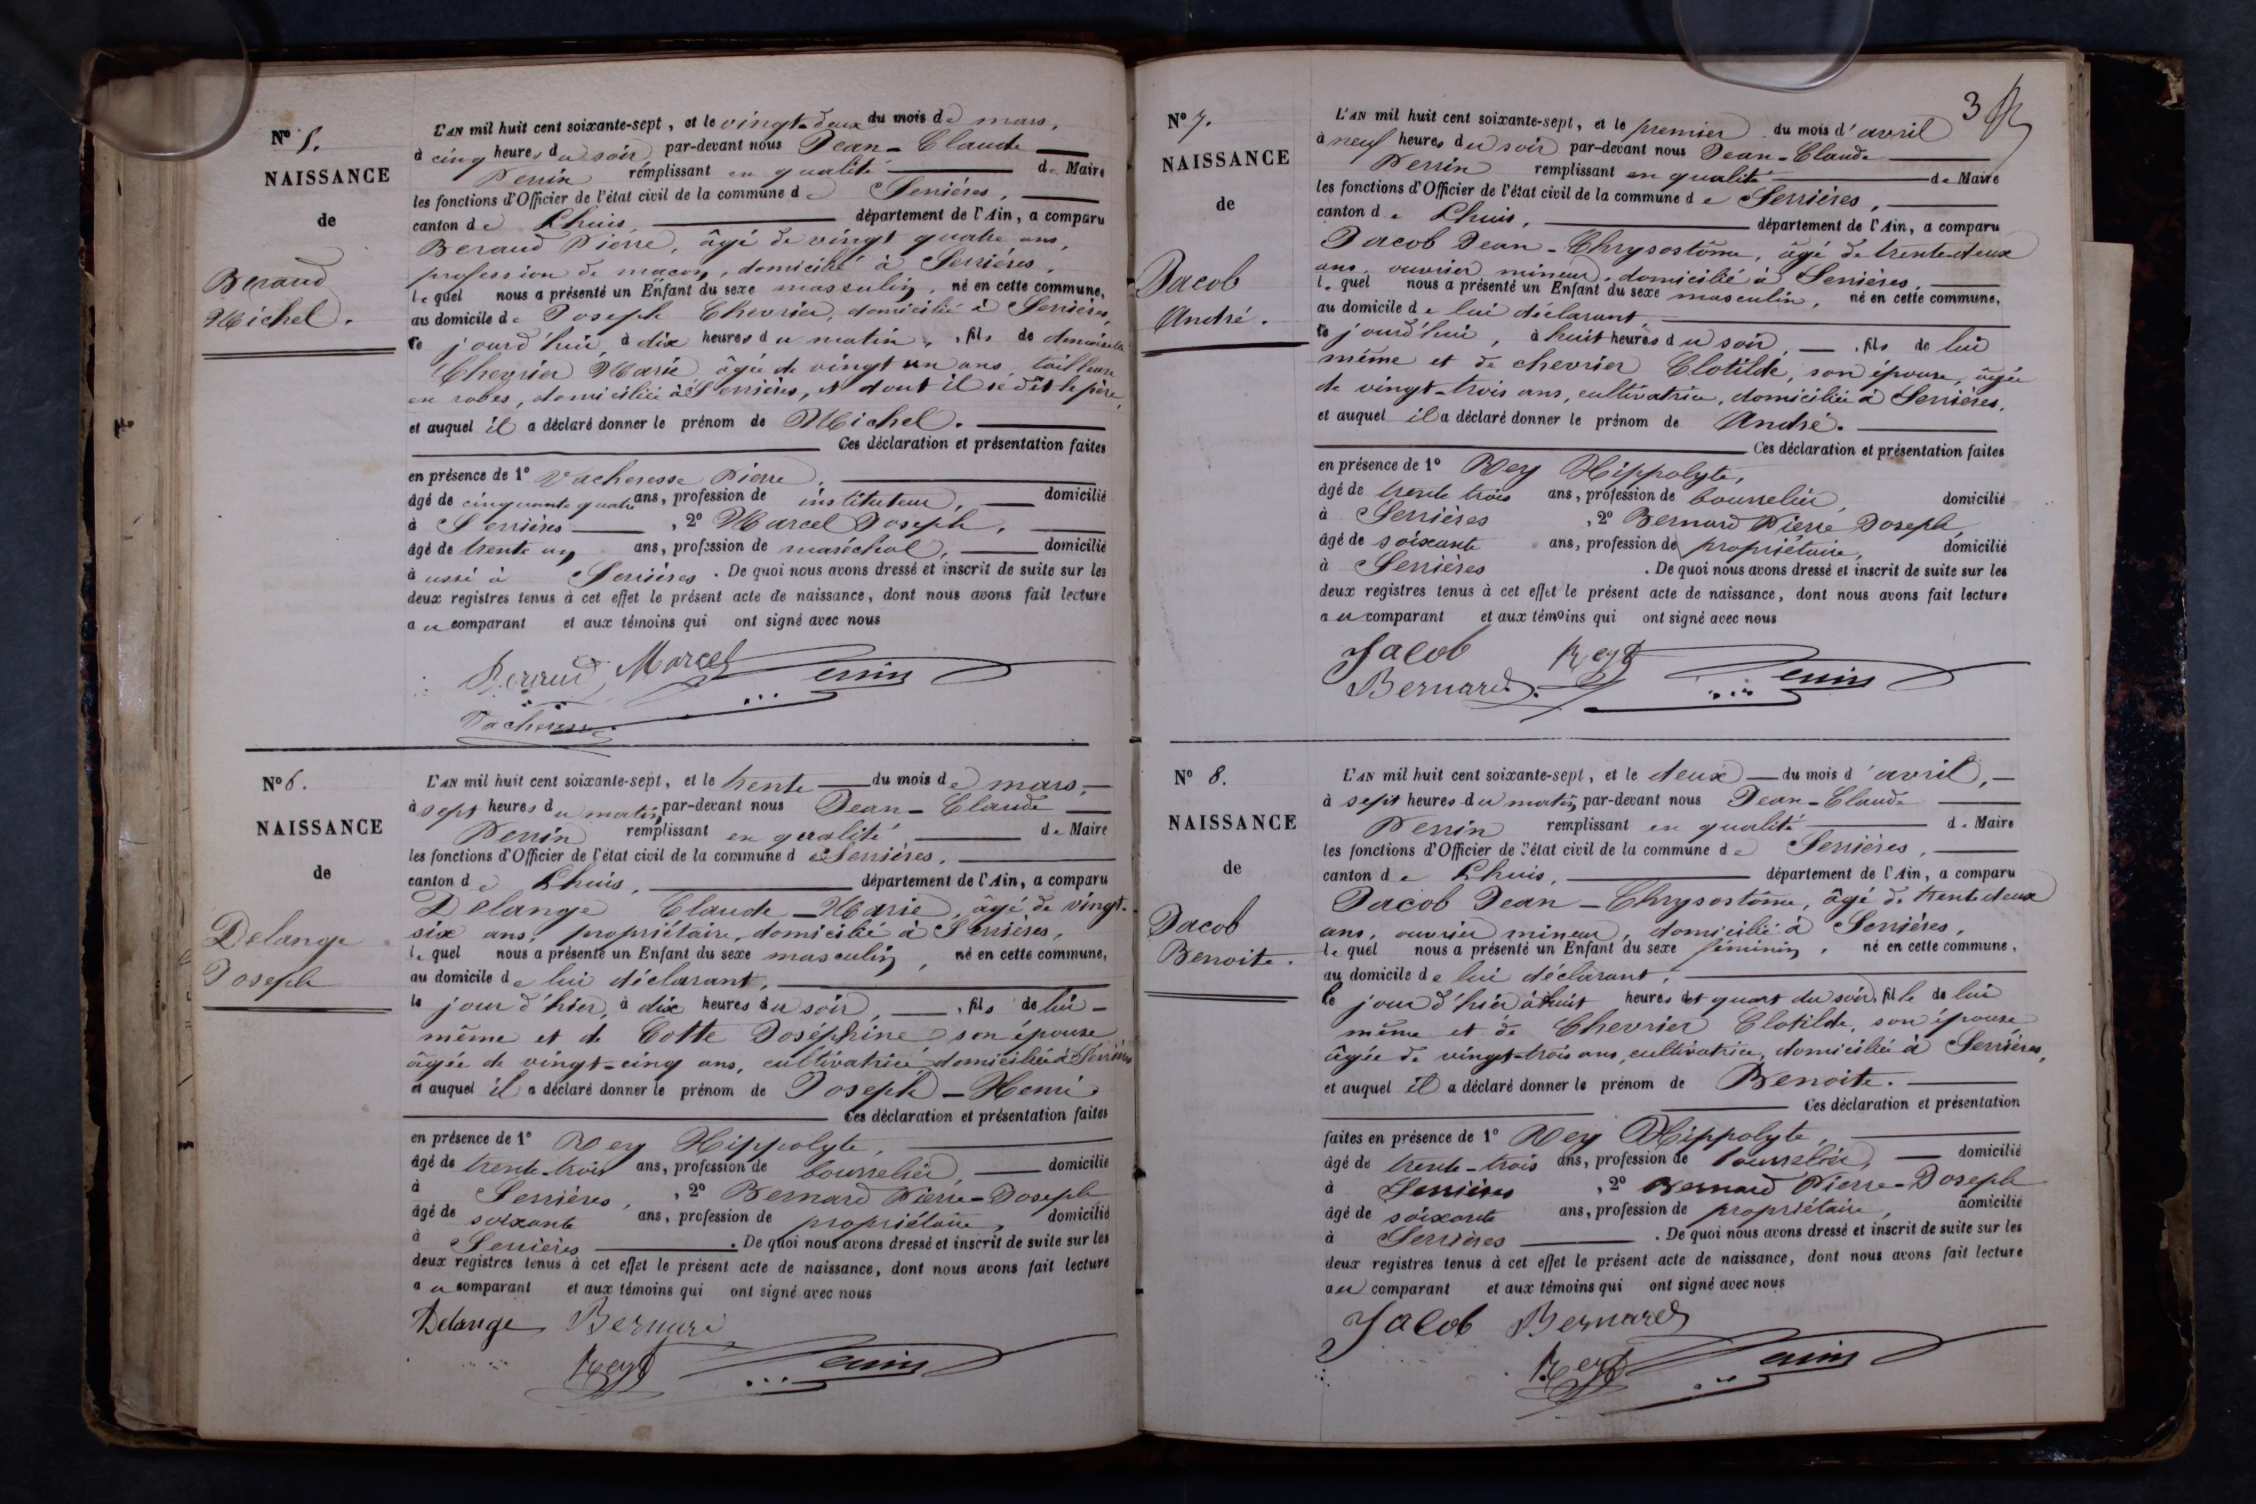 N° 5.
NAISSANCE
de
Beraud
Michel.
L'AN mil huit cent soixante-sept, et le vingt-deux du mois de mars,
à cinq heures du soir par-devant nous Jean-Claude
Perrin remplissant en qualité de Maire
les fonctions d'Officier de l'état civil de la commune de Serrières,
canton de Lhuis, département de l'Ain, a comparu
Beraud Pierre, âgé de vingt quatre ans,
profession de maçon, domicilié à Serrières,
lequel nous a présenté un Enfant du sexe masculin, né en cette commune,
au domicile de Joseph Chevrier, domicilié à Serrières,
ce jourd'hui, à dix heures du matin, fils de demoiselle
Chevrier Marie âgée de vingt un ans, tailleuse
en robes, domiciliée à Serrières, et dont il se dit le père,
et auquel il a déclaré donner le prénom de Michel.
Ces déclaration et présentation faites
en présence de 1° Vacheresse Pierre,
âgé de cinquante quatre ans, profession de instituteur, domicilié
à Serrières, 2° Marcel Joseph,
âgé de trente un ans, profession de maréchal, domicilié
à aussi à Serrières. De quoi nous avons dressé et inscrit de suite sur les
deux registres tenus à cet effet le présent acte de naissance, dont nous avons fait lecture
au comparant et aux témoins qui ont signé avec nous
Beraud Marcel Perrin
Vacheresse
N° 6.
NAISSANCE
de
Delange
Joseph
L'AN mil huit cent soixante-sept, et le trente du mois de mars,
à sept heures du matin, par-devant nous Jean-Claude
Perrin remplissant en qualité de Maire
les fonctions d'Officier de l'état civil de la commune de Serrières,
canton de Lhuis, département de l'Ain, a comparu
Delange Claude-Marie, âgé de vingt-
six ans, propriétaire, domicilié à Serrières,
lequel nous a présenté un Enfant du sexe masculin, né en cette commune,
au domicile de lui déclarant,
le jour d'hier, à dix heures du soir, fils de lui-
même et de Cotte Joséphine son épouse
âgée de vingt-cinq ans, cultivatrice domiciliée à Serrières
et auquel il a déclaré donner le prénom de Joseph-Henri
Ces déclaration et présentation faites
en présence de 1° Rey Hippolyte,
âgé de trente-trois ans, profession de bourrelier, domicilié
à Serrières, 2° Bernard Pierre-Joseph
âgé de soixante ans, profession de propriétaire, domicilié
à Serrières. De quoi nous avons dressé et inscrit de suite sur les
deux registres tenus à cet effet le présent acte de naissance, dont nous avons fait lecture
au comparant et aux témoins qui ont signé avec nous
Delange Bernard
Rey Perrin
3
N° 7.
NAISSANCE
de
Jacob
André.
L'AN mil huit cent soixante-sept, et le premier du mois d'avril
à neuf heures du soir par-devant nous Jean-Claude
Perrin remplissant en qualité de Maire
les fonctions d'Officier de l'état civil de la commune de Serrières,
canton de Lhuis, département de l'Ain, a comparu
Jacob Jean-Chrysostôme, âgé de trente-deux
ans, ouvrier mineur, domicilié à Serrières,
lequel nous a présenté un Enfant du sexe masculin, né en cette commune,
au domicile de lui déclarant
ce jourd'hui, à huit heures du soir, fils de lui
même et de chevrier Clotilde, son épouse, âgée
de vingt-trois ans, cultivatrice, domiciliée à Serrières,
et auquel il a déclaré donner le prénom de André.
Ces déclaration et présentation faites
en présence de 1° Rey Hippolyte,
âgé de trente trois ans, profession de bourrelier, domicilié
à Serrières, 2° Bernard Pierre Joseph,
âgé de soixante ans, profession de propriétaire, domicilié
à Serrières. De quoi nous avons dressé et inscrit de suite sur les
deux registres tenus à cet effet le présent acte de naissance, dont nous avons fait lecture
au comparant et aux témoins qui ont signé avec nous
Jacob Rey
Bernard Perrin
N° 8.
NAISSANCE
de
Jacob
Benoite.
L'AN mil huit cent soixante-sept, et le deux du mois d'avril,
à sept heures du matin, par-devant nous Jean-Claude
Perrin remplissant en qualité de Maire
les fonctions d'Officier de l'état civil de la commune de Serrières,
canton de Lhuis, département de l'Ain, a comparu
Jacob Jean-Chrysostôme, âgé de trente deux
ans, ouvrier mineur, domicilié à Serrières,
lequel nous a présenté un Enfant du sexe féminin, né en cette commune,
au domicile de lui déclarant,
le jour d'hier à huit heures et quart du soir, fille de lui
même et de Chevrier Clotilde, son épouse
âgée de vingt-trois ans, cultivatrice, domiciliée à Serrières,
et auquel il a déclaré donner le prénom de Benoite.
Ces déclaration et présentation
faites en présence de 1° Rey Hippolyte,
âgé de trente-trois ans, profession de bourrelier, domicilié
à Serrières, 2° Bernard Pierre-Joseph
âgé de soixante ans, profession de propriétaire, domicilié
à Serrières. De quoi nous avons dressé et inscrit de suite sur les
deux registres tenus à cet effet le présent acte de naissance, dont nous avons fait lecture
au comparant et aux témoins qui ont signé avec nous
Jacob Bernard
Rey Perrin